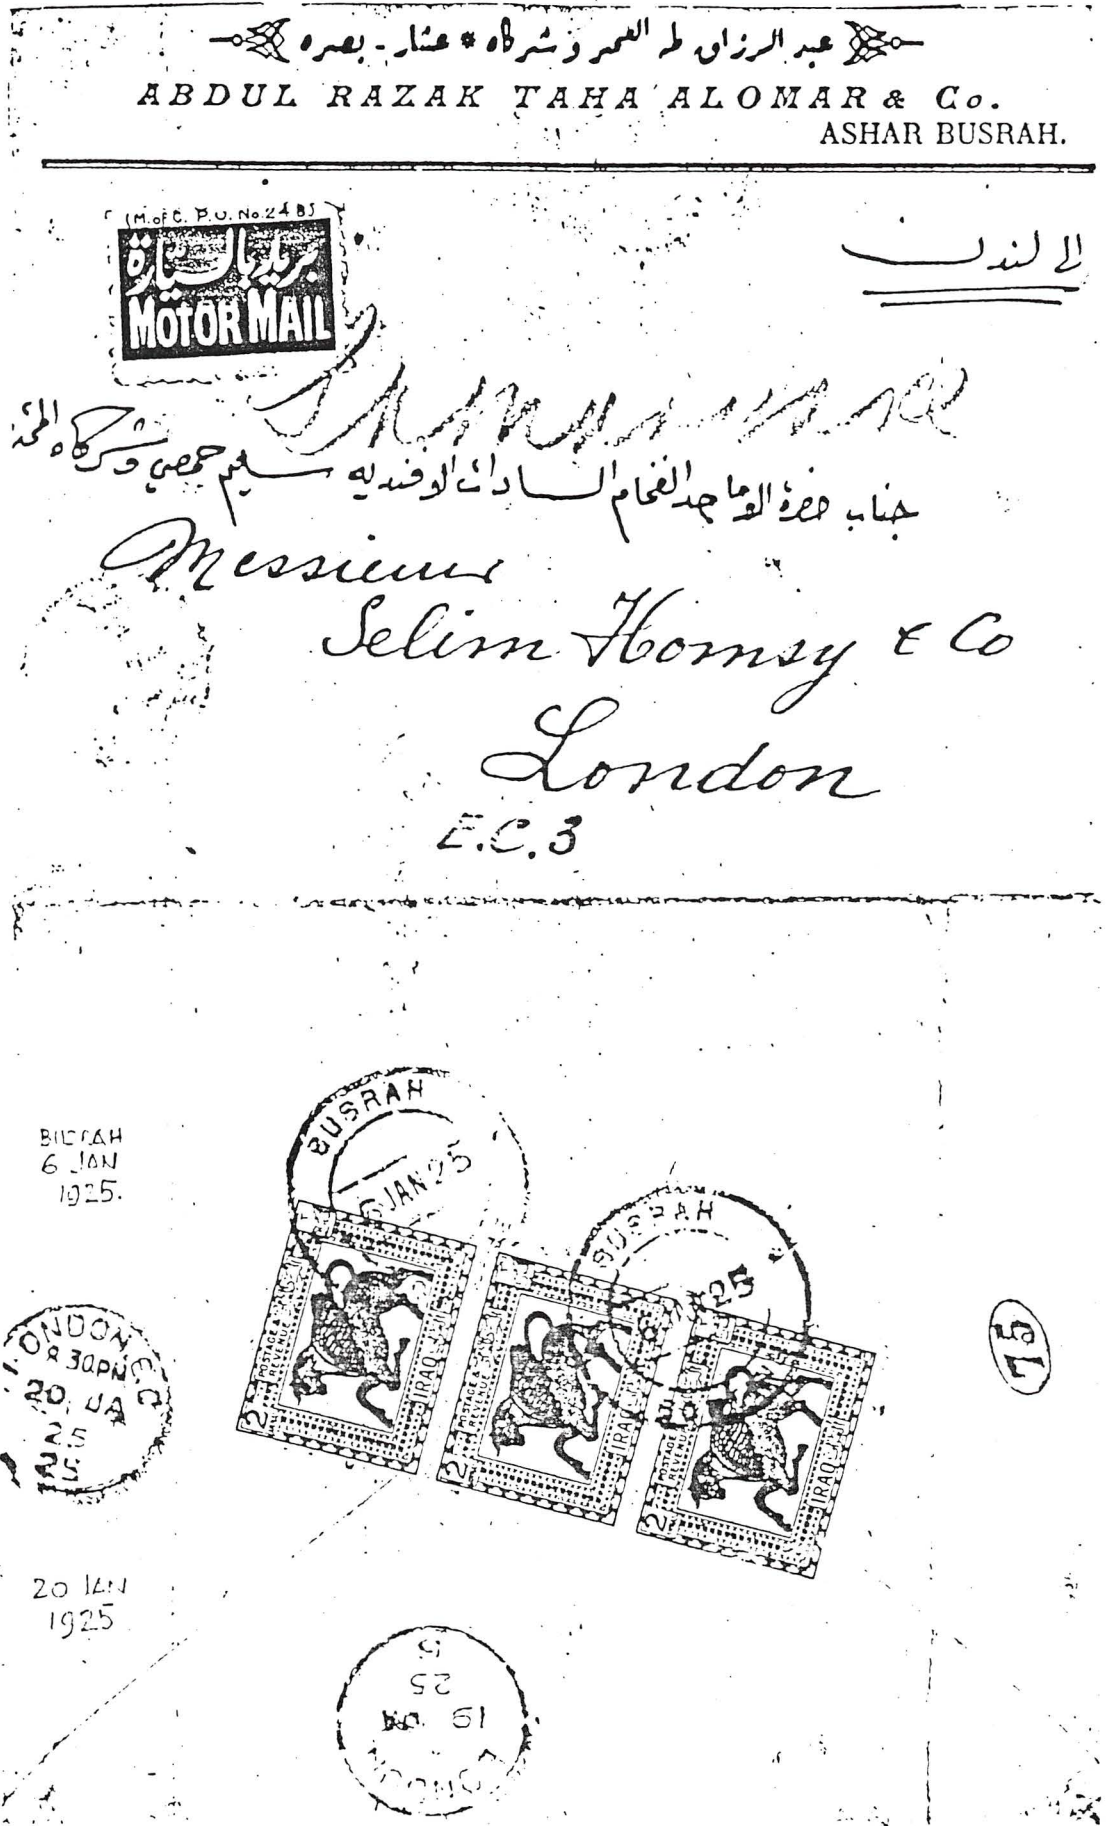 عبد الرزاق طه العمر و شركاه * عشار - بصره
ABDUL RAZAK TAHA ALOMAR & Co.
ASHAR BUSRAH.
(M. of C. P.U. No. 248)
بريد بالسيارة
MOTOR MAIL
الى لندن
جناب حضرة الاماجد الفخام السادات الافنديه سليم حمصي وشركاه
Messieurs
Selim Homsy & Co
London
E.C.3
BUSRAH
6 JAN 25
BUSRAH
25
BUSRAH
6 JAN
1925.
POSTAGE & REVENUE
IRAQ
2
POSTAGE & REVENUE
IRAQ
2
POSTAGE & REVENUE
IRAQ
2
75
LONDON, E.C
8 30PM
20 JA
25
20 JAN
1925
LONDON
19 JA
25
5